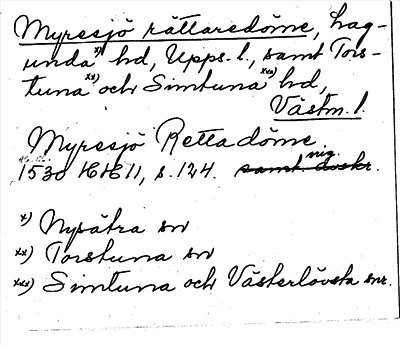 Myresjö rättaredöme, Lag-
unda x) hd, Upps. l., samt Tors-
tuna xx) och Simtuna xxx) hd,
Västm. l.
Myresjö Rettadöme
1530 KH 11, s. 124. samt avskr.
x) Nysätra sn
xx) Torstuna sn
xxx) Simtuna och Västerlövsta snr.